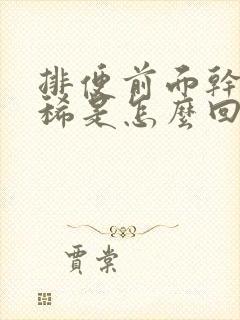 排便前而幹
稀是怎麼回
賈棠